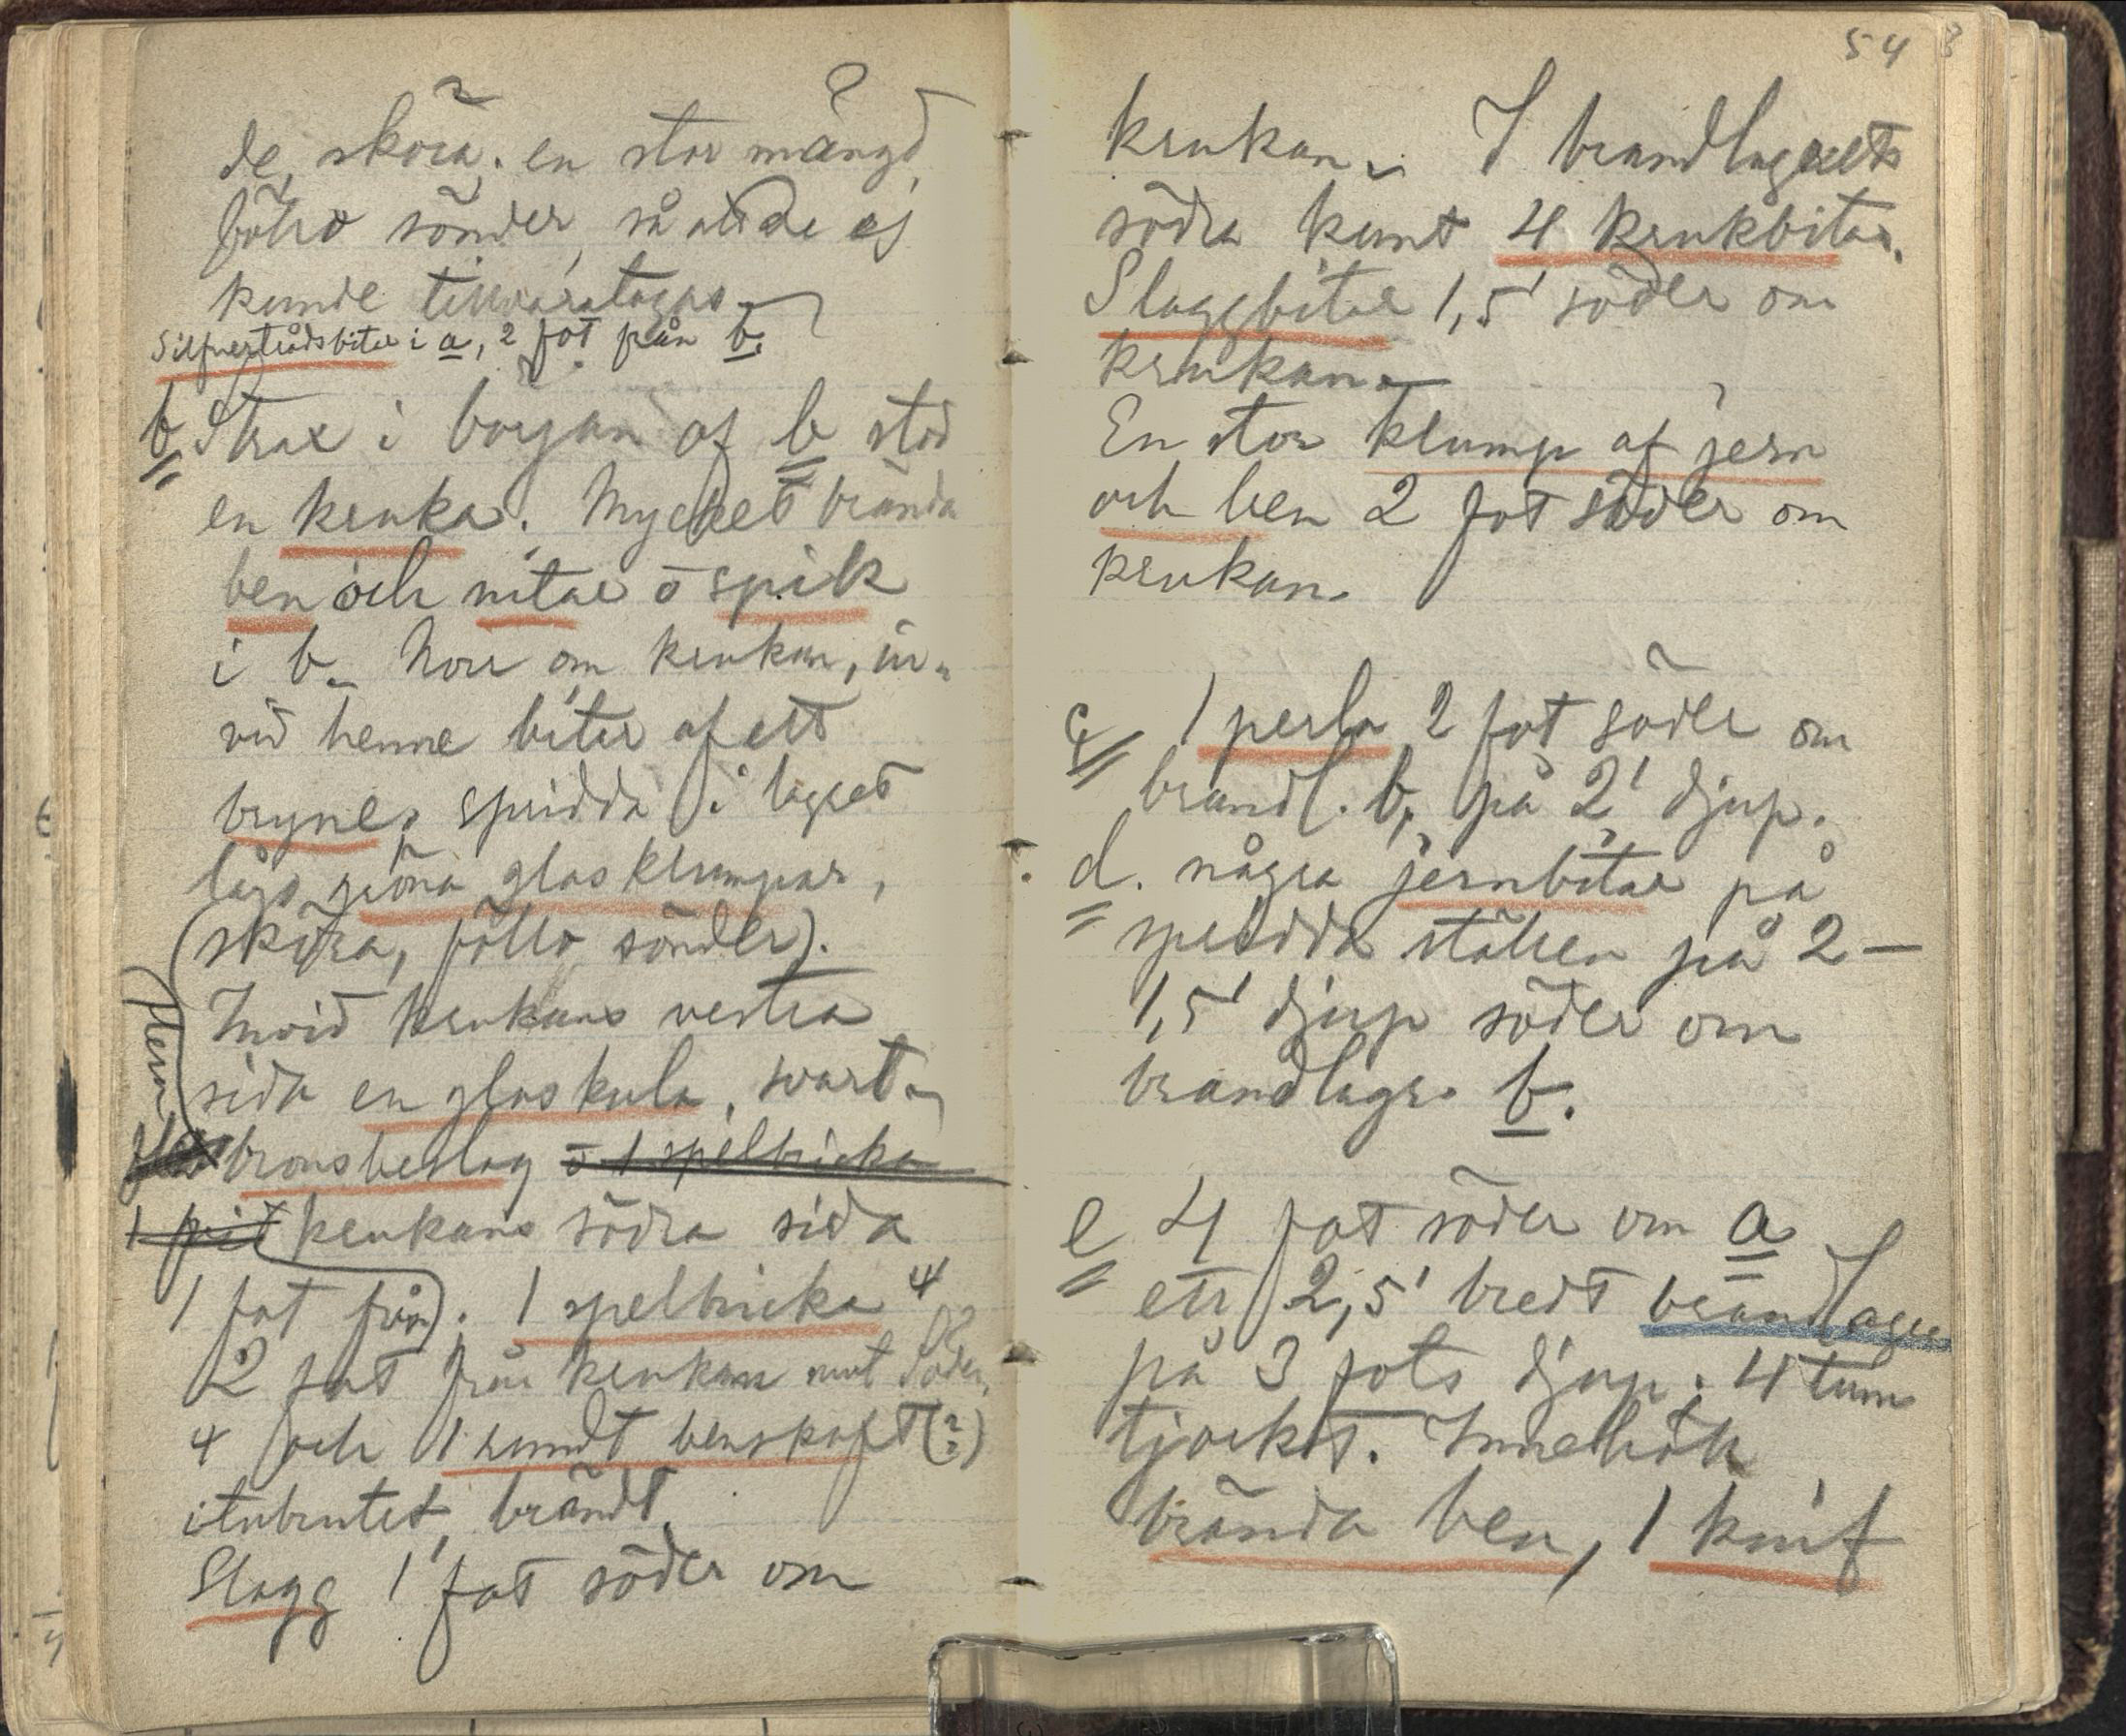 de, sköra. en stor mängd
föllo sönder, så att de ej
kunde tillvaratagas.
Silfvertrådsbitar i a, 2 fot från b.
b Strax i början af b stod
en kruka. Mycket brända
ben och nitar o spik
i b. Norr om krukan, in-
vid henne bitar af ett
bryne, spridda i lagret
lågo gröna glasklumpar,
(sköra, föllo sönder).
Invid krukans vestra
sida en glaskula, svart,
flera
bronsbeslag o 1 spelbricka
krukans södra sida
1 fot från). 1 spelbricka 4
2 fot från krukan mot söder,
4 och 1 rundt benskaft (?)
itubrutet, brändt.
Slagg 1 fot söder om
54
krukan. I brandlagrets
södra kant 4 krukbitar.
Slaggbitar 1,5' söder om
krukan.
En stor klump af jern
och ben 2 fot söder om
krukan.
c 1 perla 2 fot söder om
brandl. b, på 2' djup.
d. några jernbitar på
spridda ställen på 2-
1,5' djup söder om
brandlagr. b.
e 4 fot söder om a
ett 2,5' bredt brandlager
på 3 fots djup. 4 tum
tjockt. Innehöll
brända ben, 1 knif